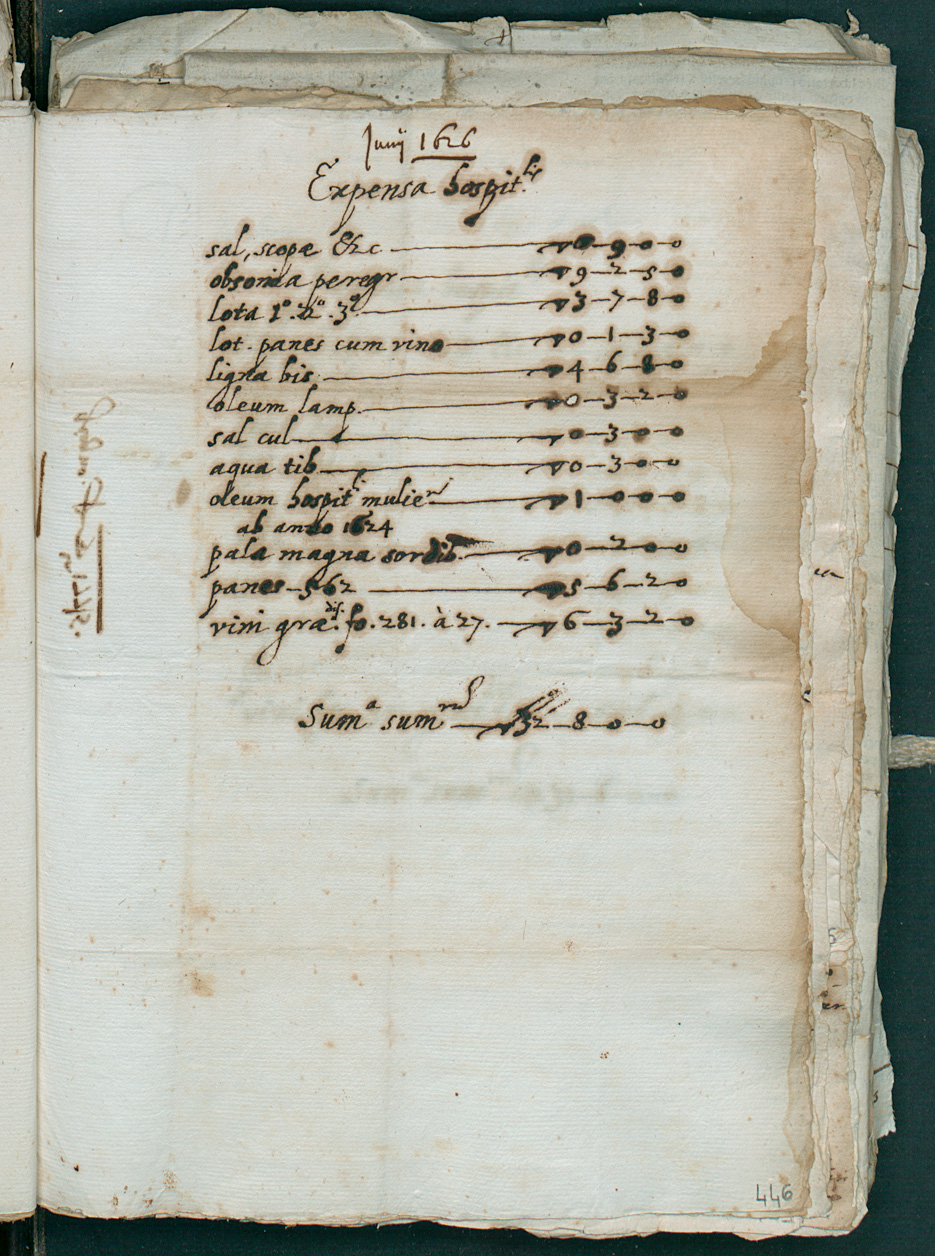 Junij 1626
Expensa hospit.lis
sal, scopæ &c — ▽0–9–0–0
obsonia peregr — ▽9–2–5–0
lota 1º. 2º. 3º. — ▽3–7–8–0
lot. panes cum vino — ▽0–1–3–0
ligna bis. — ▽4–6–8–0
oleum lamp. — ▽0–3–2–0
sal cul — ▽0–3–0–0
aqua tib — ▽0–3–0–0
oleum hospit.li mulier — ▽1–0–0–0
ab anno 1624
pala magna sordib. — ▽0–2–0–0
panes–562 — ▽5–6–2–0
vini græ. fo. 281. à 27. — ▽6–3–2–0
Suma sumrum — ▽32–8–0–0
446